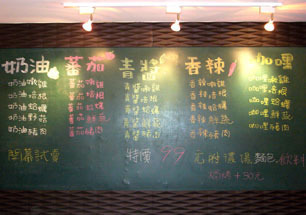 奶油 蕃茄 青醬 香辣 咖哩
奶油燉雞 蕃茄燉雞 青醬燉雞 香辣燉雞 咖哩燉雞
奶油培根 蕃茄培根 青醬培根 香辣培根 咖哩培根
奶油蛤蠣 蕃茄蛤蠣 青醬蛤蠣 香辣蛤蠣 咖哩蛤蠣
奶油野菇 蕃茄鮮蔬 青醬鮮蔬 香辣鮮蔬 咖哩鮮蔬
奶油豬肉 蕃茄豬肉 青醬豬肉 香辣豬肉 咖哩豬肉
開幕試賣 特價 99 元附濃湯 麵包 飲料
焗烤+30元